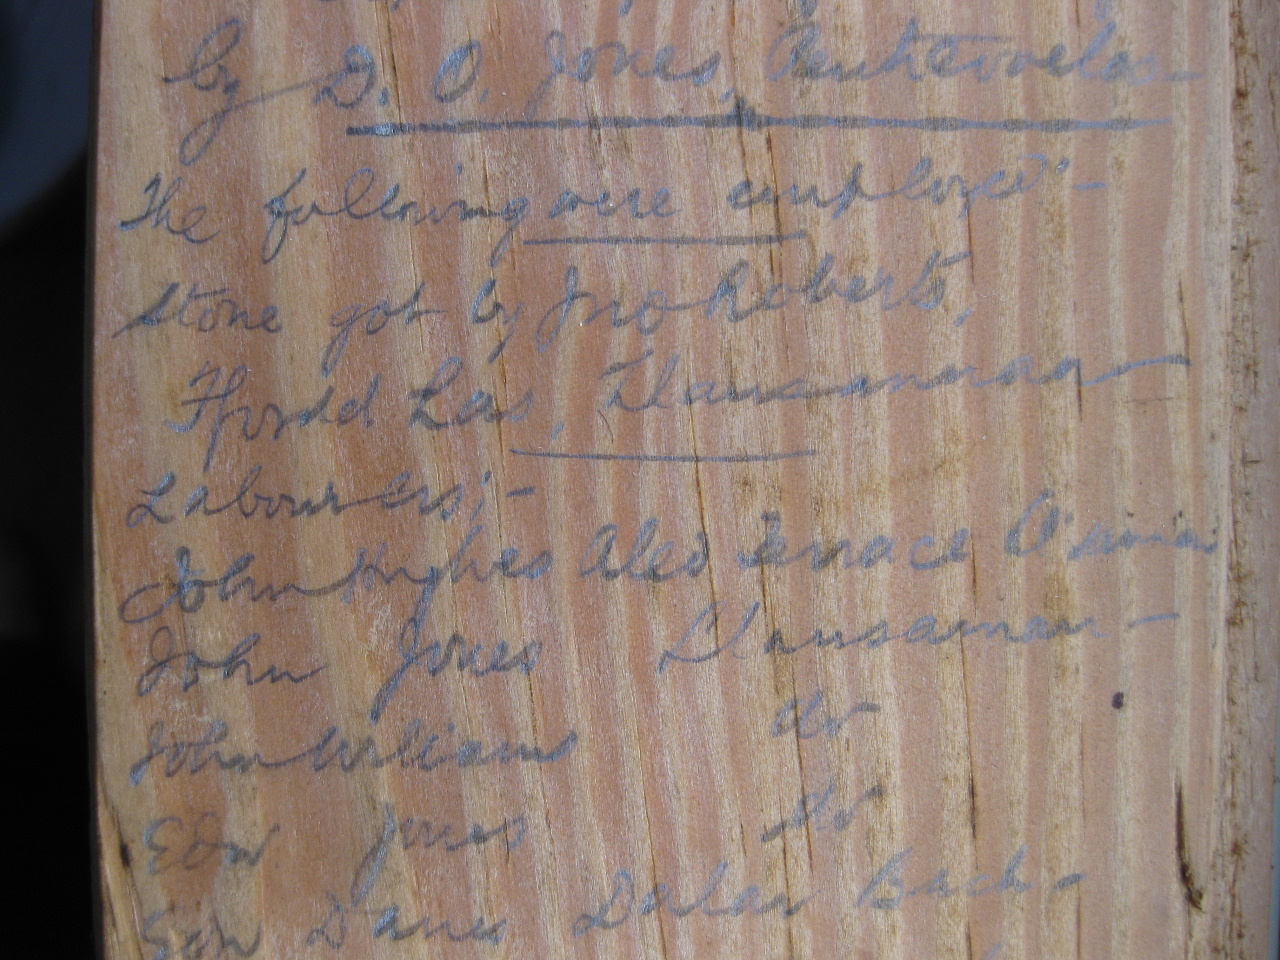 by D. O. Jones,
The following were employed:-
Stone got by Jno Roberts,
Ffordd Las, Llansannan
Labourers;-
John Hughes Aled Terrace
John Jones Llansannan -
John Williams do
Edw Jones do
Edw Davies Bach -